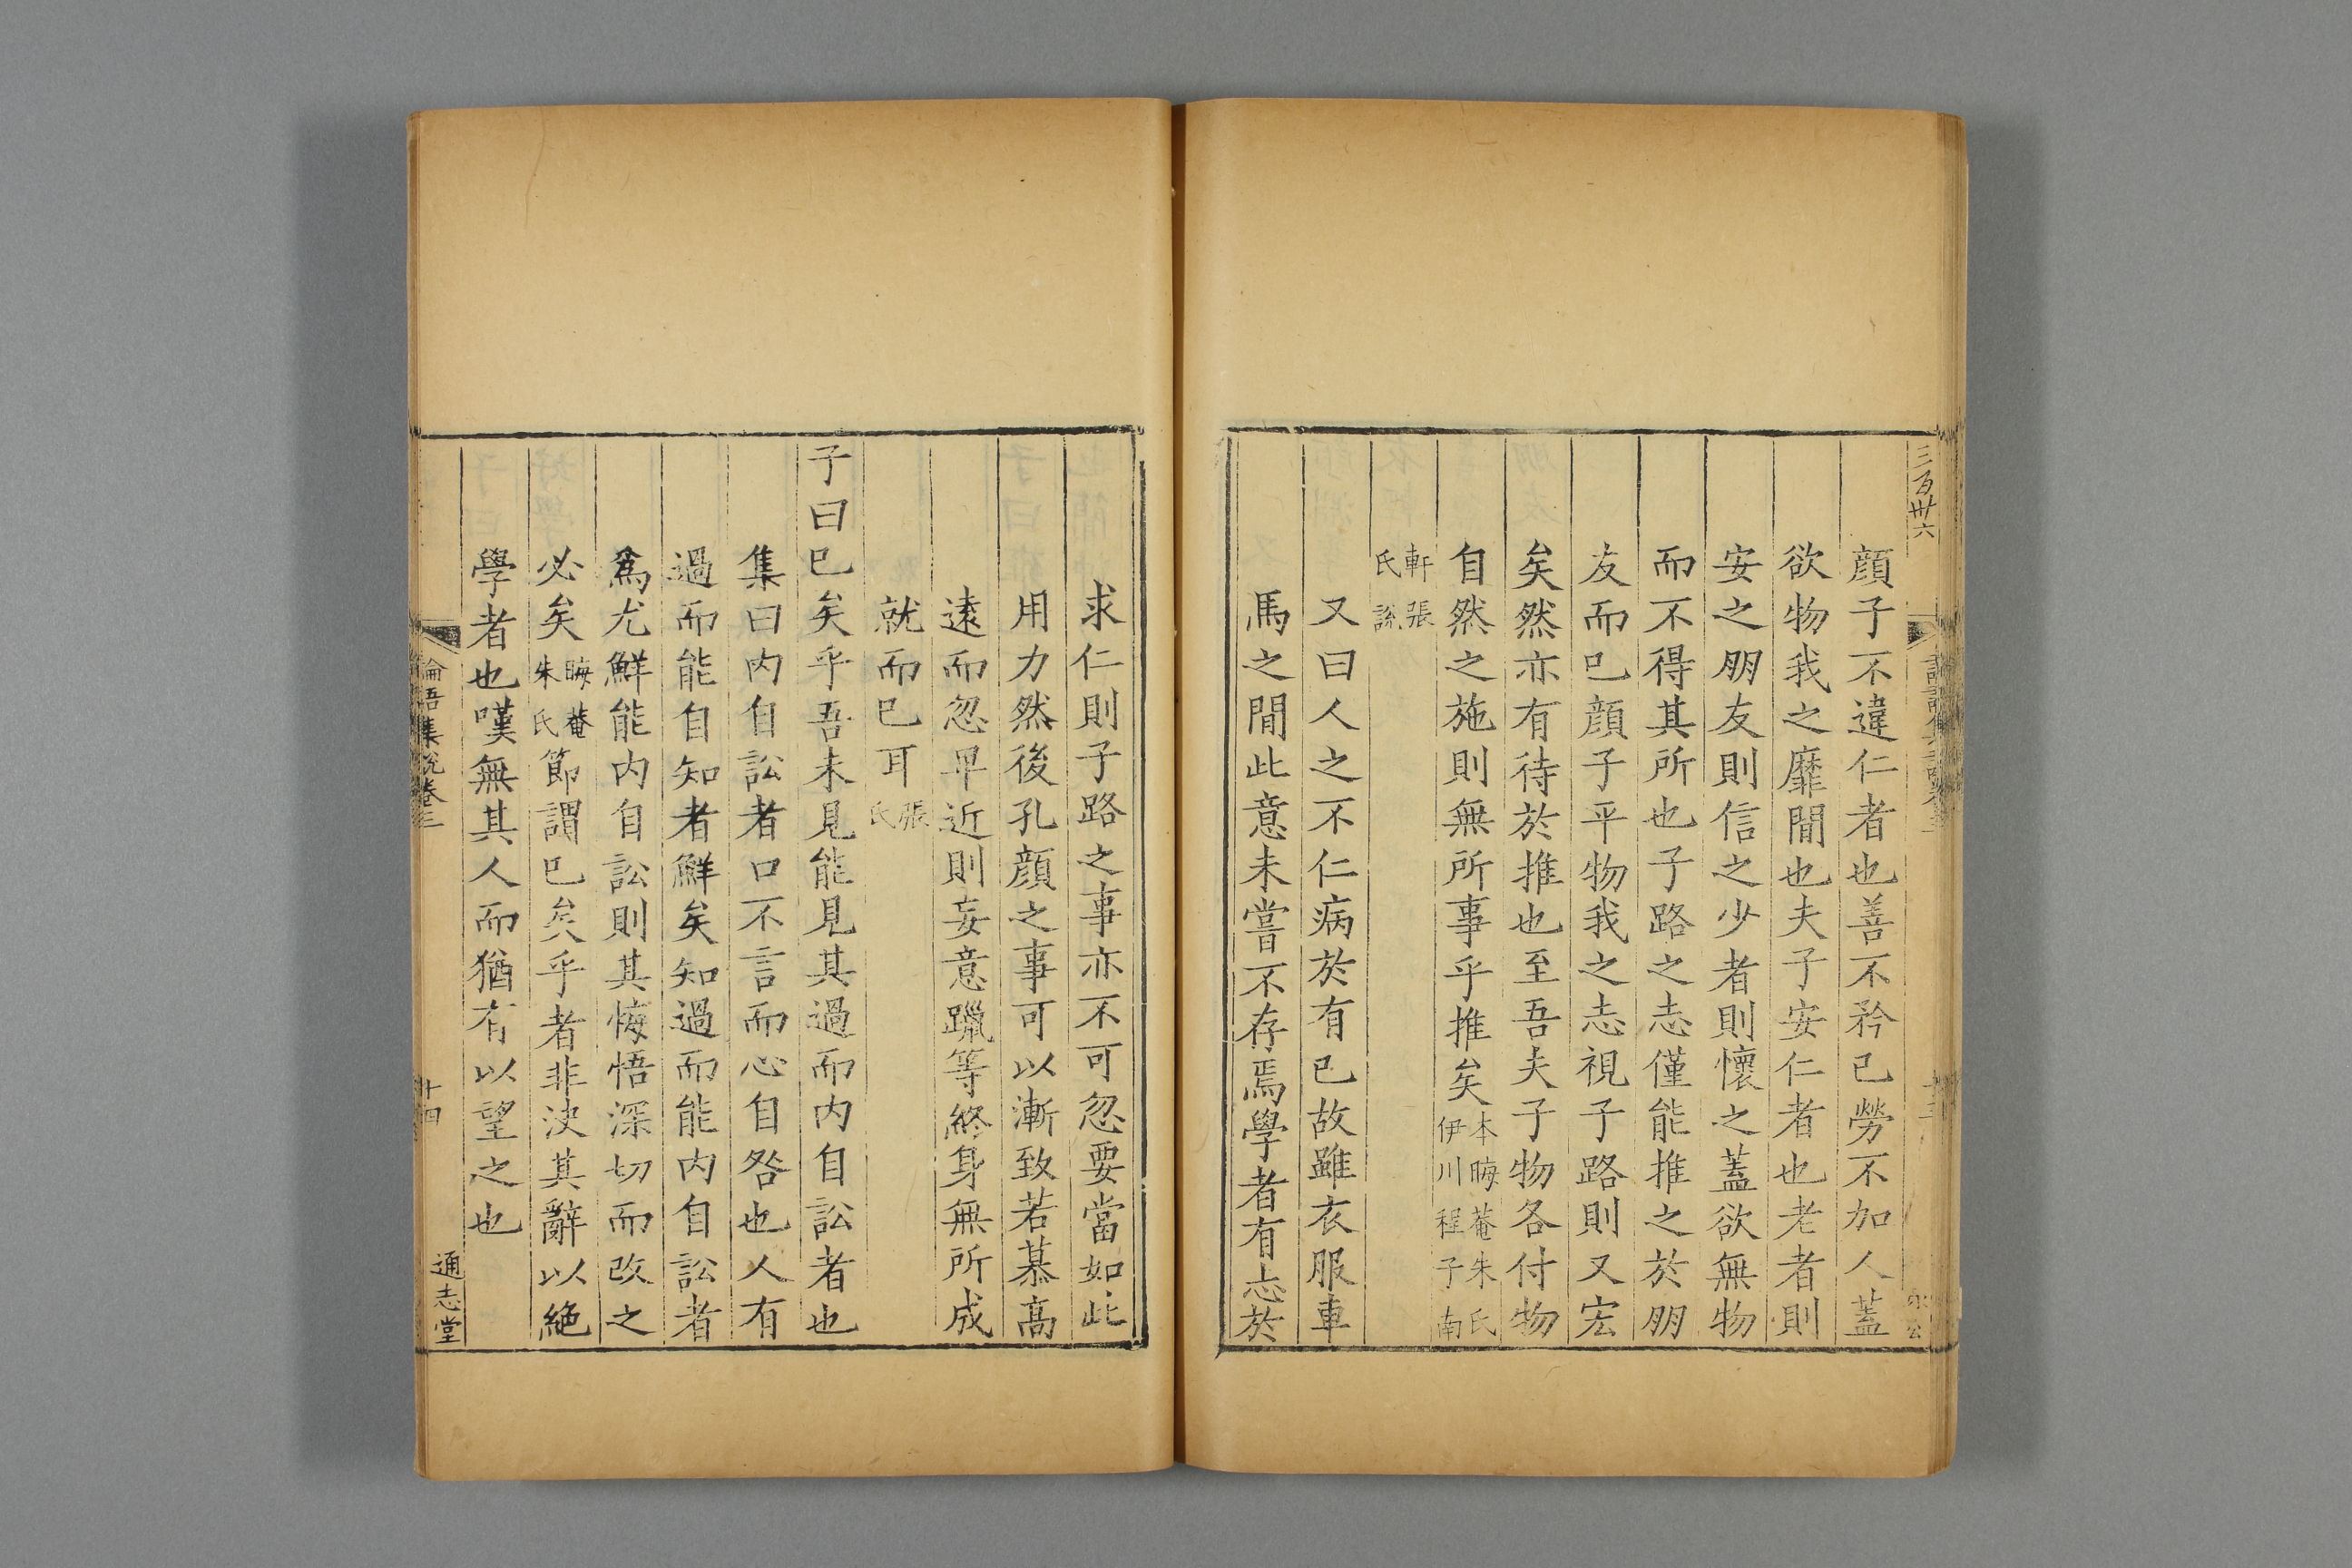 三百卅六
顔子不違仁者也善不矜已勞不加人蓋
欲物我之靡間也夫子安仁者也老者則
安之朋友則信之少者則懷之蓋欲無物
而不得其所也子路之志僅能推之於朋
友而已顔子平物我之志視子路則又宏
矣然亦有待於推也至吾夫子物各付物
自然之施則無所事乎推矣本晦菴朱氏伊川程子南
軒張氏說
又曰人之不仁病於有已故雖衣服車
馬之間此意未嘗不存焉學者有志於
求仁則子路之事亦不可忽要當如此
用力然後孔顔之事可以漸致若慕高
遠而忽卑近則妄意躐等終身無所成
就而已耳張氏
子曰已矣乎吾未見能見其過而内自訟者也
集曰内自訟者口不言而心自咎也人有
過而能自知者鮮矣知過而能内自訟者
爲尤鮮能内自訟則其悔悟深切而改之
必矣晦菴朱氏節謂已矣乎者非決其辭以絶
學者也嘆無其人而猶有以望之也
論語集說卷三
十四
通志堂